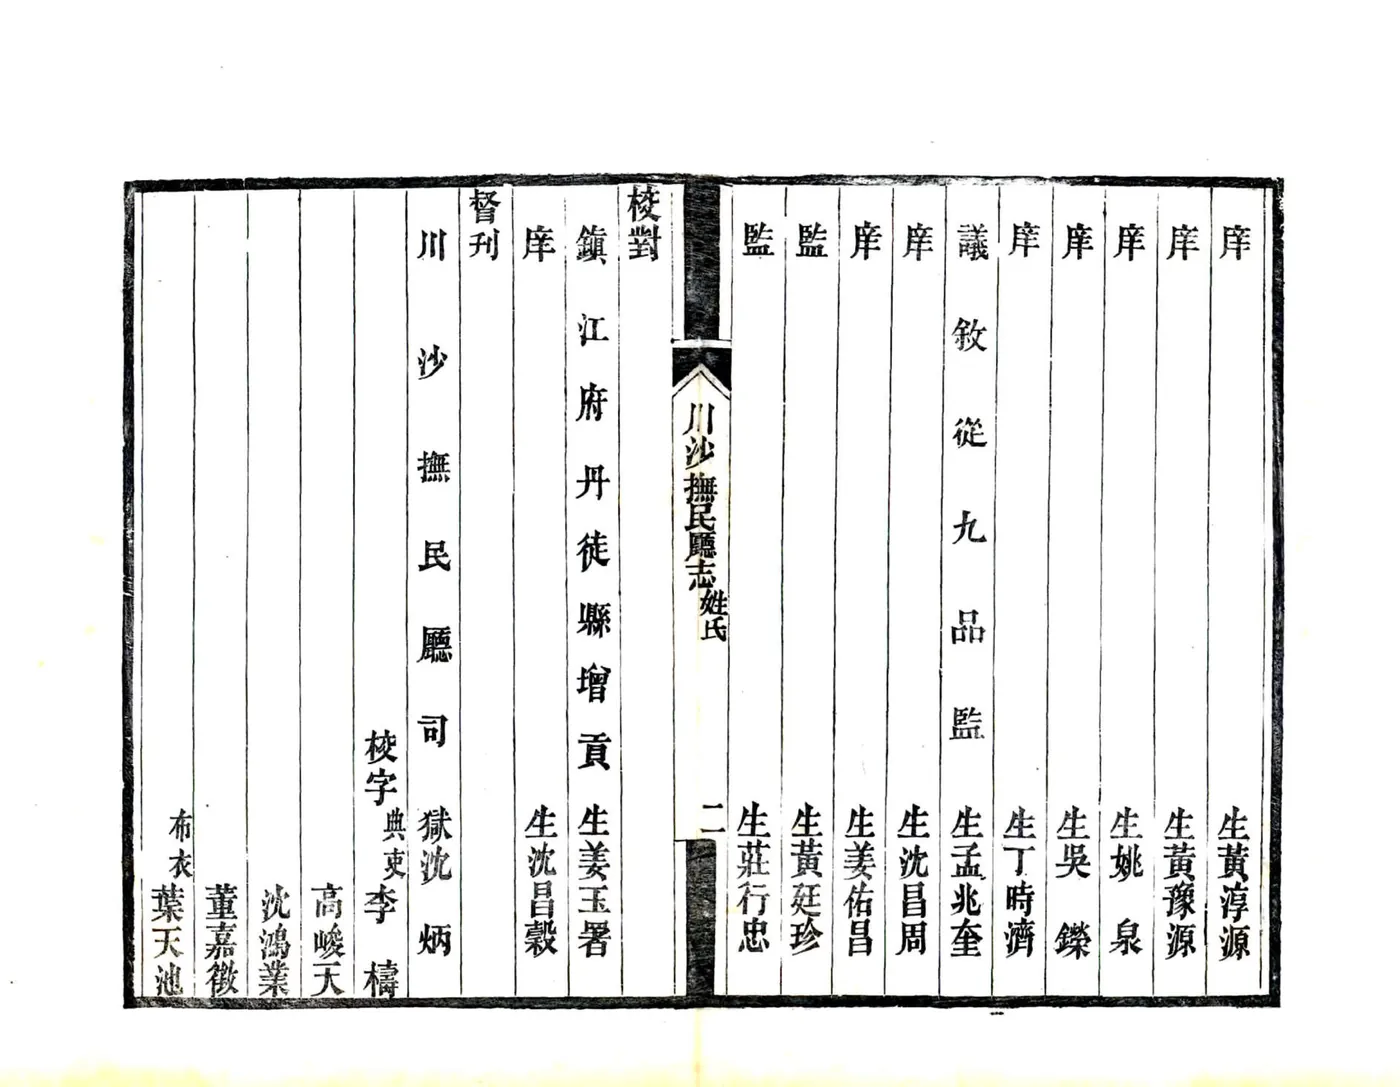 庠生黃淳源
庠生黃豫源
庠生姚泉
庠生吳鑅
庠生丁時濟
議敘從九品監生孟兆奎
庠生沈昌周
庠生姜佑昌
監生黃廷珍
監生莊行忠
川沙撫民廳志 姓氏 二
校對
鎮江府丹徒縣增貢生姜玉署
庠生沈昌穀
督刊
川沙撫民廳司獄沈炳
校字典吏李檮
高峻天
沈鴻業
董嘉徵
布衣葉天池